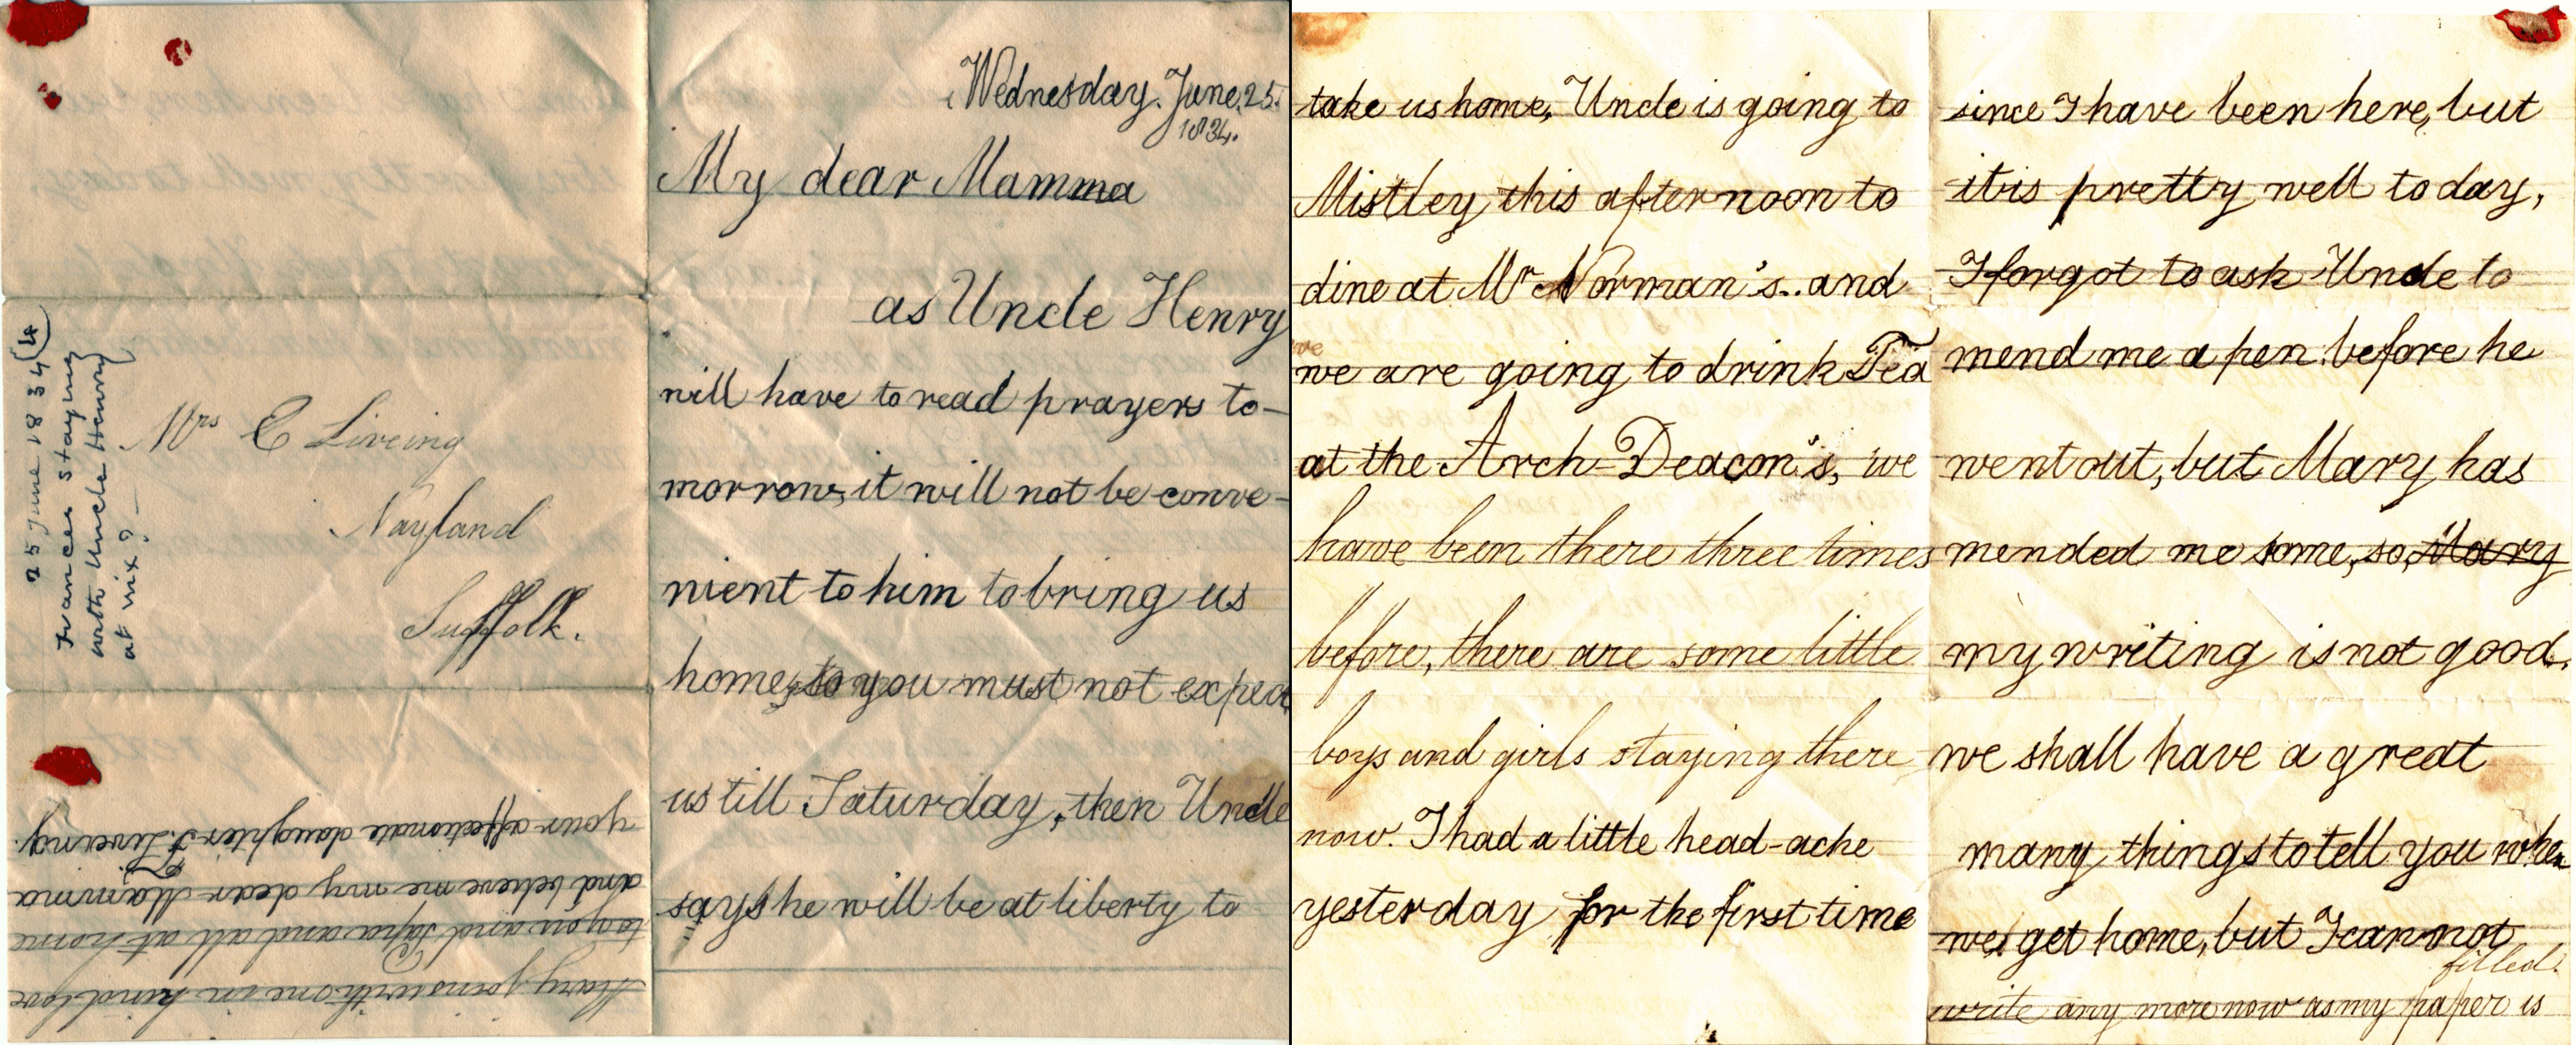 Wednesday. June. 25.
1834.
My dear Mamma
as Uncle Henry
will have to read prayers to-
morrow, it will not be conve-
nient to him to bring us
home, so you must not expect
us till Saturday, then Uncle
says he will be at liberty to
take us home, Uncle is going to
Mistley this afternoon to
dine at Mr Norman's.. and
we
we are going to drink Tea
at the Arch-Deacon's, we
have been there three times
before, there are some little
boys and girls staying there
now. I had a little head-ache
yesterday for the first time
since I have been here, but
it is pretty well to day,
I forgot to ask Uncle to
mend me a pen before he
went out, but Mary has
mended me some, so, Mary
my writing is not good.
we shall have a great
many things to tell you when
we get home, but I can not
filled.
write any more now as my paper is
Mary joins with me in kind love
to you and Papa and all at home
and believe me my dear Mamma
your affectionate daughter F. Liveing.
Mrs C Liveing
Nayland
Suffolk.
25 June 1834 (14)
Frances staying
with Uncle Henry
at Wix? -